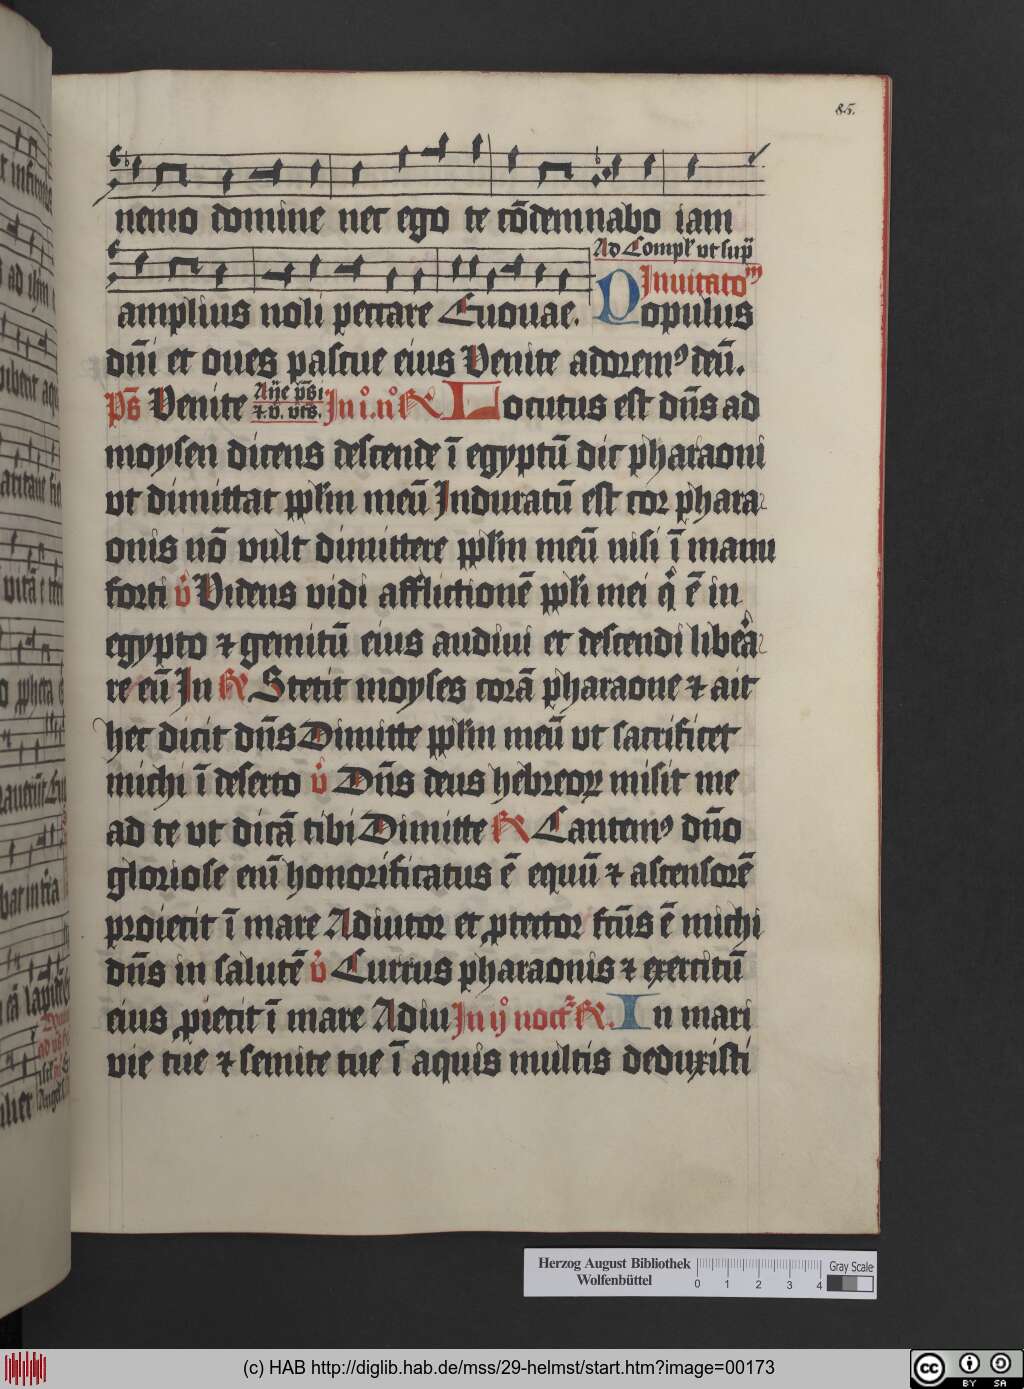 85.
nemo domine nec ego te cōdemnabo iam
Ad Compl' ut sup̄
Inuitato
amplius noli peccare Euouae. Populus
dn̄i et oues pascue eius Venite adorem⁹ deū.
Ps̄ Venite In i. n° R Locutus est dn̄s ad
moysen dicens descende ī egyptū dic pharaoni
ut dimittat pplm̄ meū Induratū est cor phara
onis nō vult dimittere pplm̄ meū nisi ī manu
forti v̊ Videns vidi afflictionē ppl̄i mei q̇ ē in
egypto ⁊ gemitū eius audiui et descendi liberā
re eū In R Stetit moyses corā pharaone ⁊ ait
hec dicit dn̄s Dimitte pplm̄ meū ut sacrificet
michi ī deserto v̊ Dn̄s deus hebreoꝝ misit me
ad te ut dicā tibi Dimitte R Cantem⁹ dn̄o
gloriose enī honorificatus ē equū ⁊ ascensorē
proiecit ī mare Adiutor et ꝓtector fcū̄s ē michi
dn̄s in salutē v̊ Currus pharaonis ⁊ exercitū
eius ꝓiecit ī mare Adiu In ij noct' R. In mari
vie tue ⁊ semite tue ī aquis multis deduxisti
Herzog August Bibliothek
Wolfenbüttel
0 1 2 3 4
Gray Scale
(c) HAB http://diglib.hab.de/mss/29-helmst/start.htm?image=00173
cc BY SA